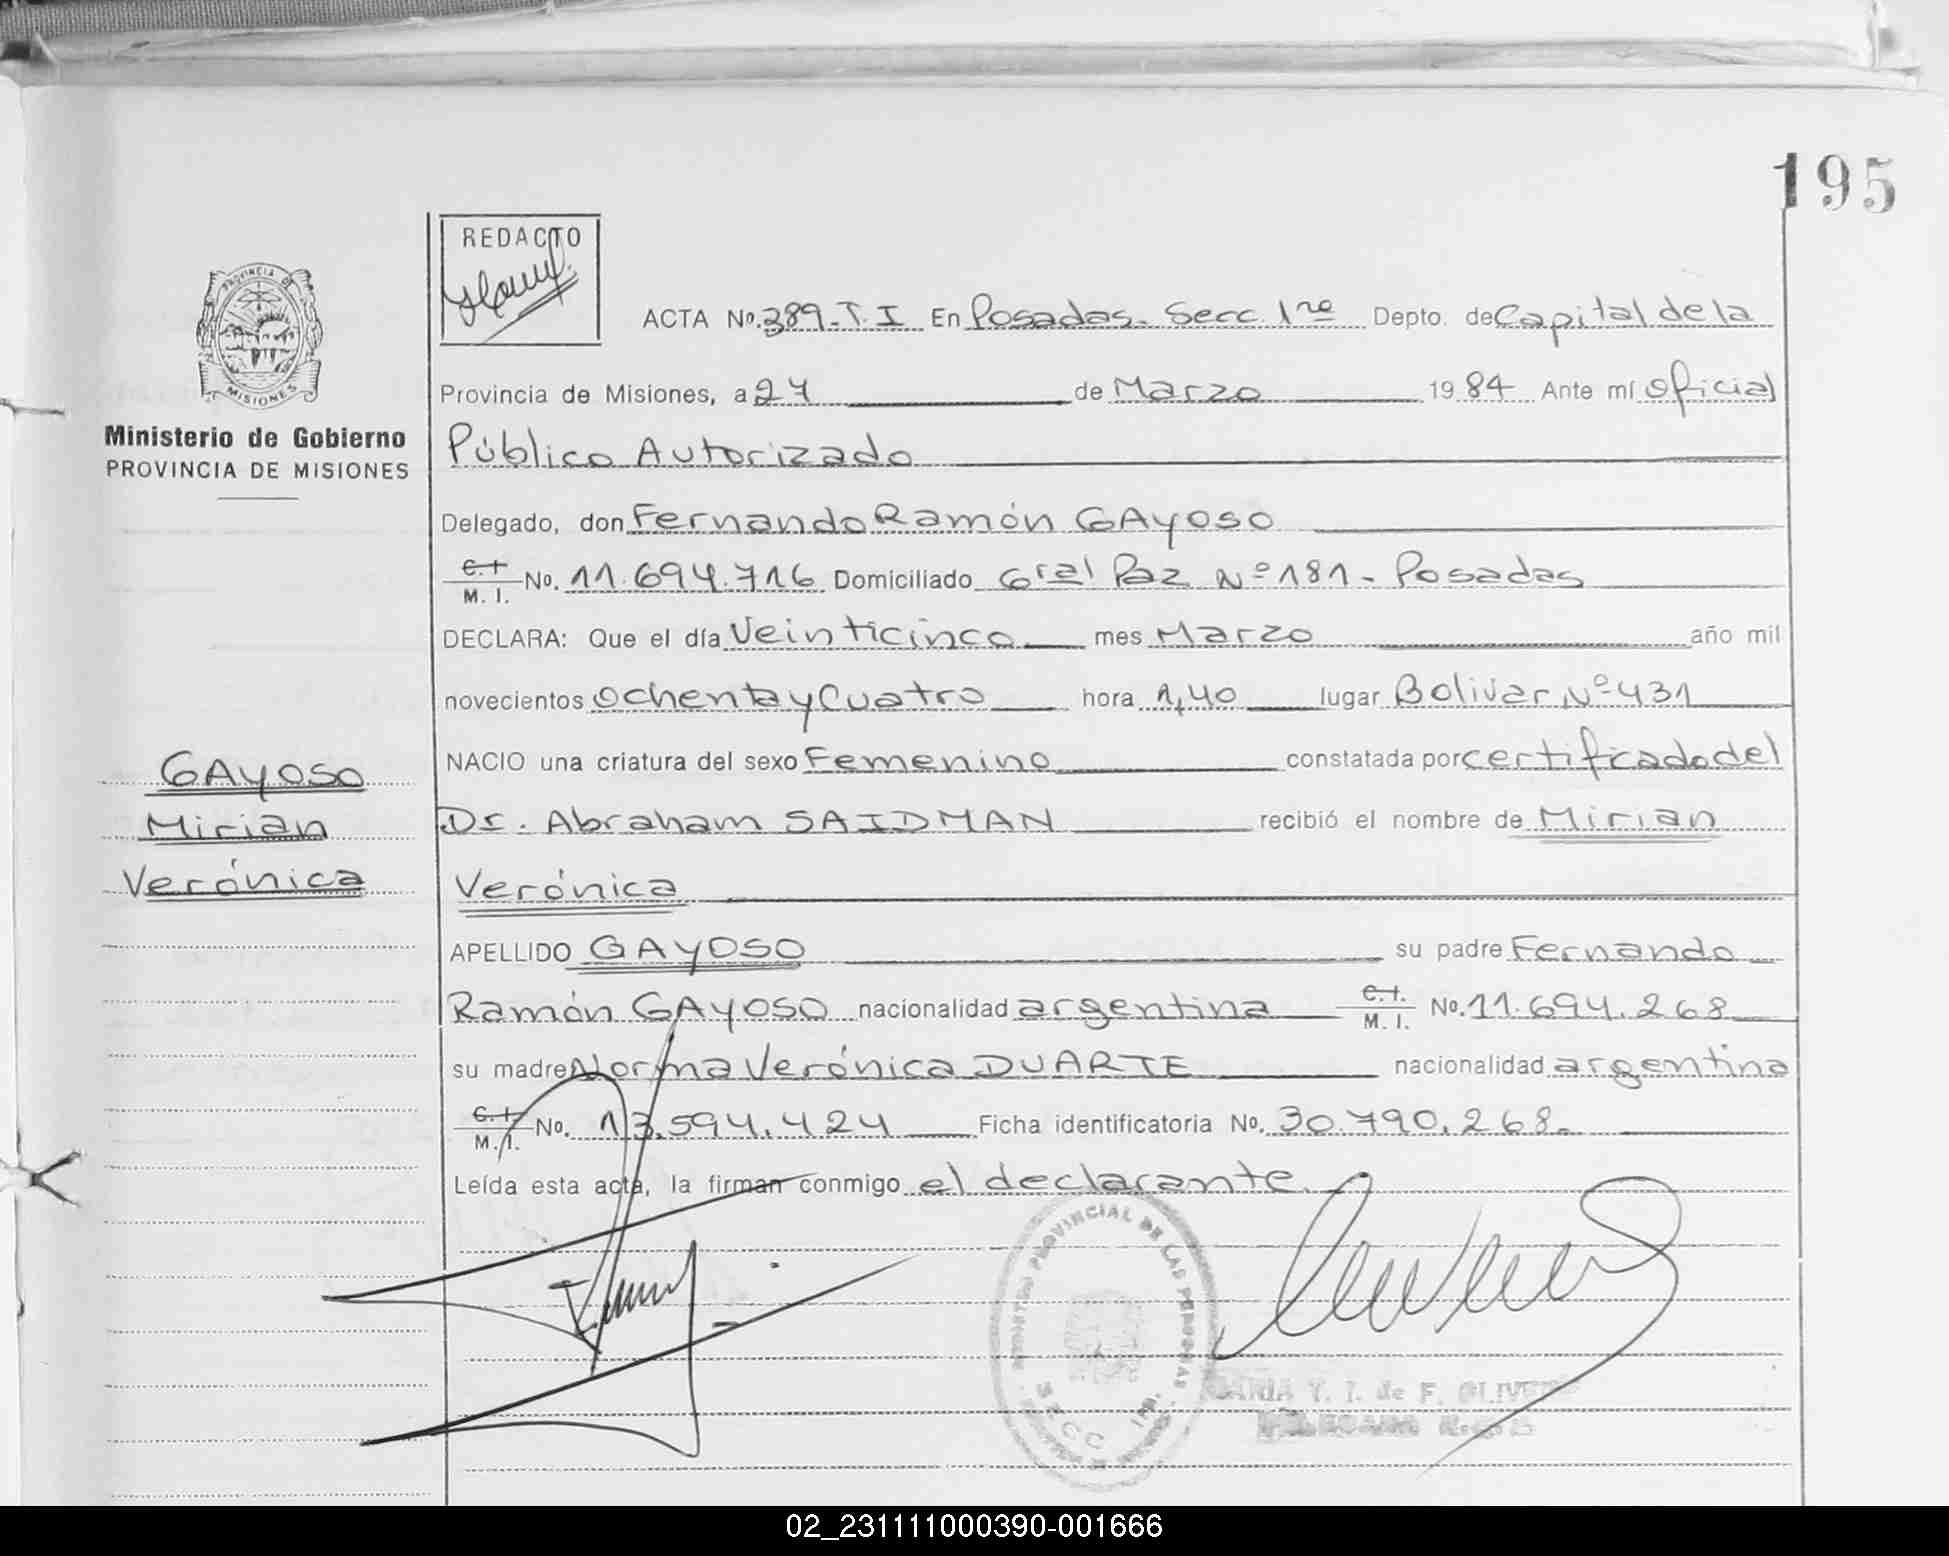 195
REDACTO
PROVINCIA DE
MISIONES
Ministerio de Gobierno
PROVINCIA DE MISIONES
ACTA No. 389-T.I En Posadas- Secc. 1ra Depto. de Capital de la
Provincia de Misiones, a 27 de Marzo 1984 Ante mí Oficial
Público Autorizado
Delegado, don Fernando Ramón GAYOSO
C.I. M. I. No. 11.694.716 Domiciliado Gral Paz Nº 181 - Posadas
DECLARA: Que el día Veinticinco mes Marzo año mil
novecientos Ochenta y Cuatro hora 1,40 lugar Bolivar Nº 431
NACIO una criatura del sexo Femenino constatada por certificado del
Dr. Abraham SAIDMAN recibió el nombre de Mirian
Verónica
GAYOSO
Mirian
Verónica
APELLIDO GAYOSO su padre Fernando
Ramón GAYOSO nacionalidad argentina C.I. M. I. No. 11.694.268
su madre Norma Verónica DUARTE nacionalidad argentina
C.I. M. I. No. 13.594.424 Ficha identificatoria No. 30.790.268.
Leída esta acta, la firman conmigo el declarante.
PROVINCIAL DE LAS PERSONAS
SECC 1RA.
Y. I. de F.
02_231111000390-001666